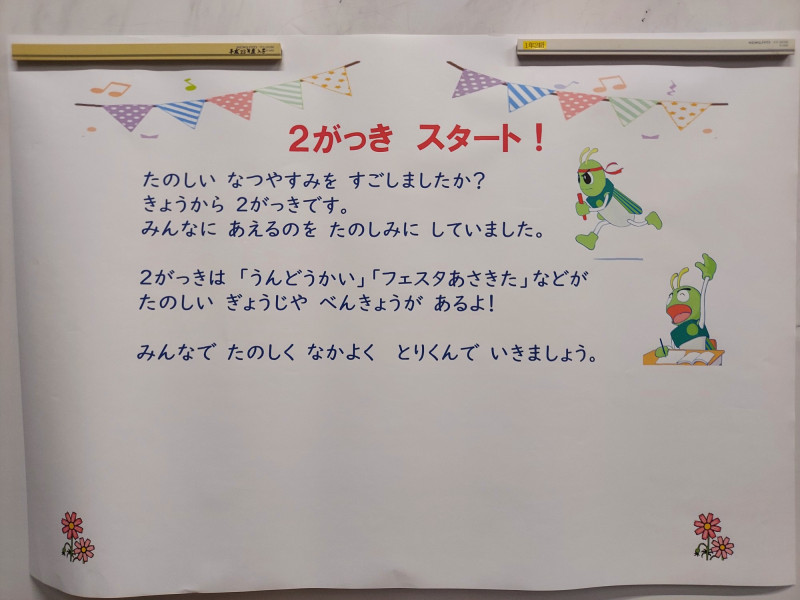 平成25年度 2年
1年3組
2がっき スタート!
たのしい なつやすみを すごしましたか?
きょうから 2がっきです。
みんなに あえるのを たのしみに していました。
2がっきは 「うんどうかい」「フェスタあさきた」などが
たのしい ぎょうじや べんきょうが あるよ!
みんなで たのしく なかよく とりくんで いきましょう。